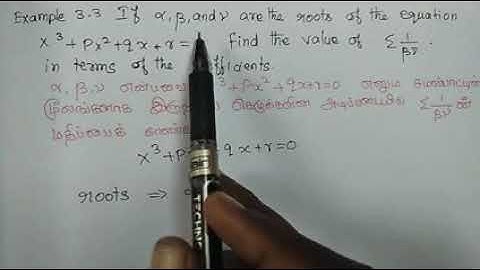 Example 3.3 If α, β, and γ are the roots of the equation
x³ + px² + qx + r = find the value of Σ 1/βγ
in terms of the
α, β, γ என்பவை ³ + px² + qx + r = 0 எனும்
மூலங்களாக அடிப்படையில் Σ 1/βγ ன்
மதிப்பைக்
x³ + p qx + r = 0
roots ⇒
TECHNO